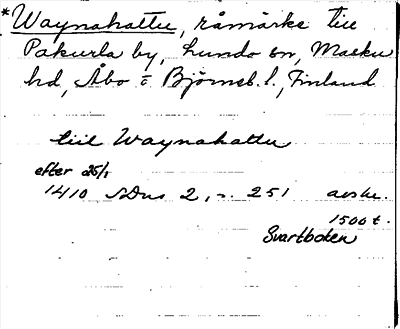 *Waynahattu, råmärke till
Pakurla by, Lundo sn, Masku
hd, Åbo o Björneb. l., Finland
till Waynahattu
efter 25/1
1410 SDns 2, s. 251 avskr.
1500 t.
Svartboken